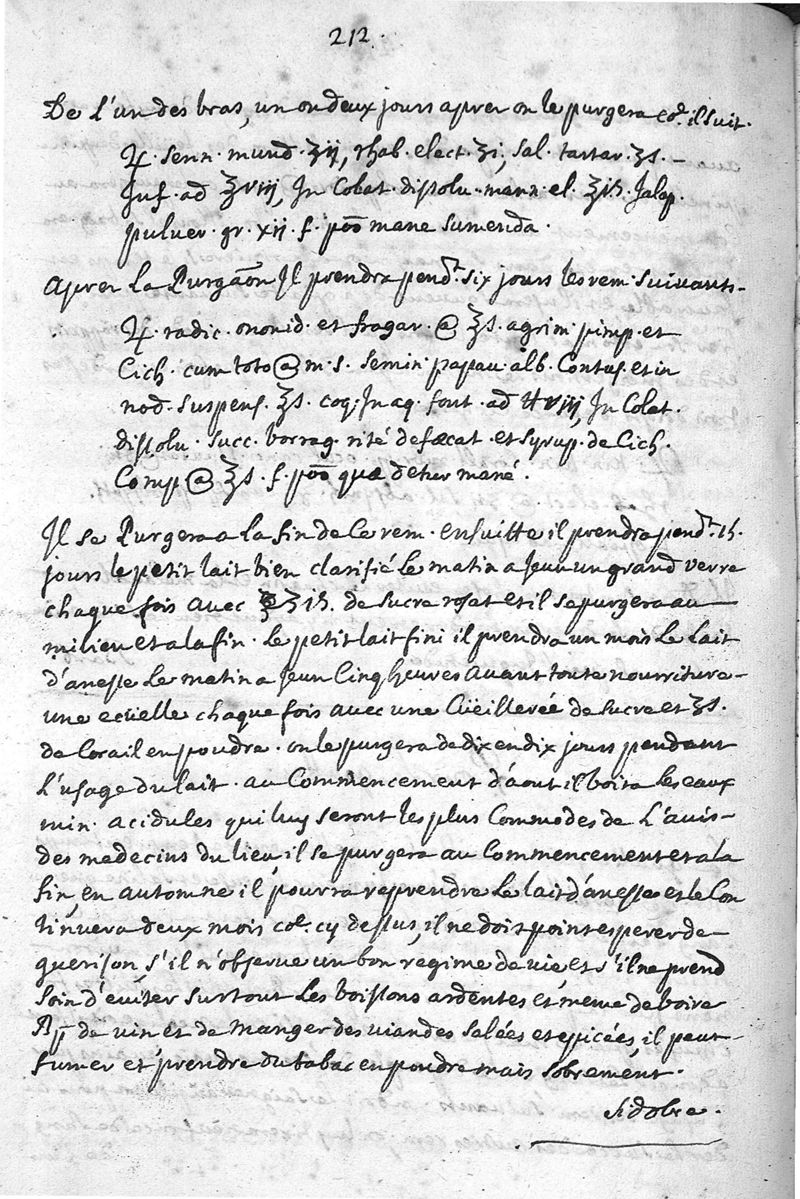 212.
De l'un des bras, un ou deux jours apres on le purgera co͞e. il suit.
℞. senn. mund. ʒij, rhab. elect. ʒi, sal. tartar. ʒs. –
Inf. ad ℥viij, In Colat. dissolu. mann. el. ℥iß. Jalap.
pulver. gr. xij. f. po͞o mane sumenda.
apres la Purgaõn Il prendra pend.t six jours les rem. suivants –
℞. radic. ononid. et fragar. @ ℥s. agrim. pimp. et
Cich. cum toto @ m. s. semin. papau. alb. Contus. et in
nod. suspens. ʒs. coq. In aq. font. ad ℔viij, In Colat.
dissolu. succ. borrag. rité defæcat. et syrup. de Cich.
Comp @ ℥s. f. po͞o quæ detur mané.
Il se Purgera a la fin de ce rem. ensuitte il prendra pend.t 15.
jours le petit lait bien clarifié le matin a jeun un grand verre
chaque fois avec ʒiß. de sucre rosat et il se purgera au
milieu et a la fin. le petit lait fini il prendra un mois le lait
d'anesse le matin a jeun Cinq heures avant toute nourriture –
une ecüelle chaque fois avec une Cüeillerée de sucre et ʒs.
de Corail en poudre. on le purgera de dix en dix jours pendant
L'usage du lait. au Commencement d'aout il boira les eaux
min. acidules qui luy seront les plus Commodes de L'avis –
des medecins du lieu, il se purgera au Commencement et a la
fin, en automne il pourra reprendre le lait d'anesse et le Con
tinuera deux mois co͞e. cy dessus, il ne doit point esperer de
guerison s'il n'observe un bon regime de vie, et s'il ne prend
soin d'eviter sur tout les boissons ardentes et meme de boire
de vin et de manger des viandes salées et epicées, il peut –
fumer et prendre du tabac en poudre mais sobrement.
Sidobre.